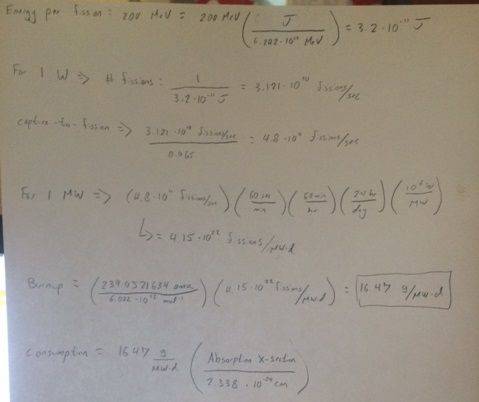 Energy per fission: 200 MeV = 200 MeV ( J / 6.242·10¹² MeV ) = 3.2·10⁻¹¹ J
For 1 W => # fissions: 1 / 3.2·10⁻¹¹ J = 3.121·10¹⁰ fissions/sec
capture-to-fission => 3.121·10¹⁰ fissions/sec / 0.065 = 4.8·10¹¹ fissions/sec
For 1 MW => (4.8·10¹¹ fissions/sec) ( 60 sec / min ) ( 60 min / hr ) ( 24 hr / day ) ( 10⁶ W / MW )
= 4.15·10²² fissions/MW·d
Burnup = ( amu / mol⁻¹ ) (4.15·10²² fissions/MW·d) = 16.47 g/MW·d
Consumption = 16.47 g / MW·d ( Absorption X-section / cm )